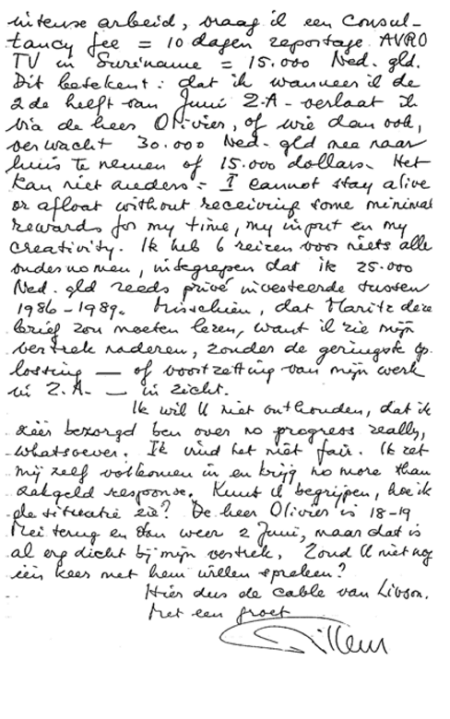 intense arbeid, vraag ik een Consul-
tancy fee = 10 dagen reportage AVRO
TV in Suriname = 15.000 Ned. gld.
Dit betekent: dat ik wanneer ik de
2de helft van Juni Z.A. verlaat ik
via de heer Olivier, of wie dan ook,
verwacht 30.000 Ned. gld mee naar
huis te nemen of 15.000 dollars. Het
kan niet anders: I cannot stay alive
or afloat without receiving some minimal
rewards for my time, my input en my
creativity. Ik heb 6 reizen voor niets alle
ondernomen, inbegrepen dat ik 25.000
Ned. gld reeds privé investeerde tussen
1986-1989. Misschien, dat Maritz deze
brief zou moeten lezen, want ik zie mijn
vertrek naderen, zonder de geringste op-
lossing — of voortzetting van mijn werk
in Z.A. — in zicht.
Ik wil U niet onthouden, dat ik
zéér bezorgd ben over no progress really,
whatsoever. Ik vind het niet fair. Ik zet
mij zelf volkomen in en krijg no more than
zakgeld response. Kunt U begrijpen, hoe ik
de situatie zie? De heer Olivier is 18-19
Mei terug en dan weer 2 Juni, maar dat is
al erg dicht bij mijn vertrek. Zoud U niet nog
één keer met hem willen spreken?
Hier dus de cable van
Met een groet
Willem